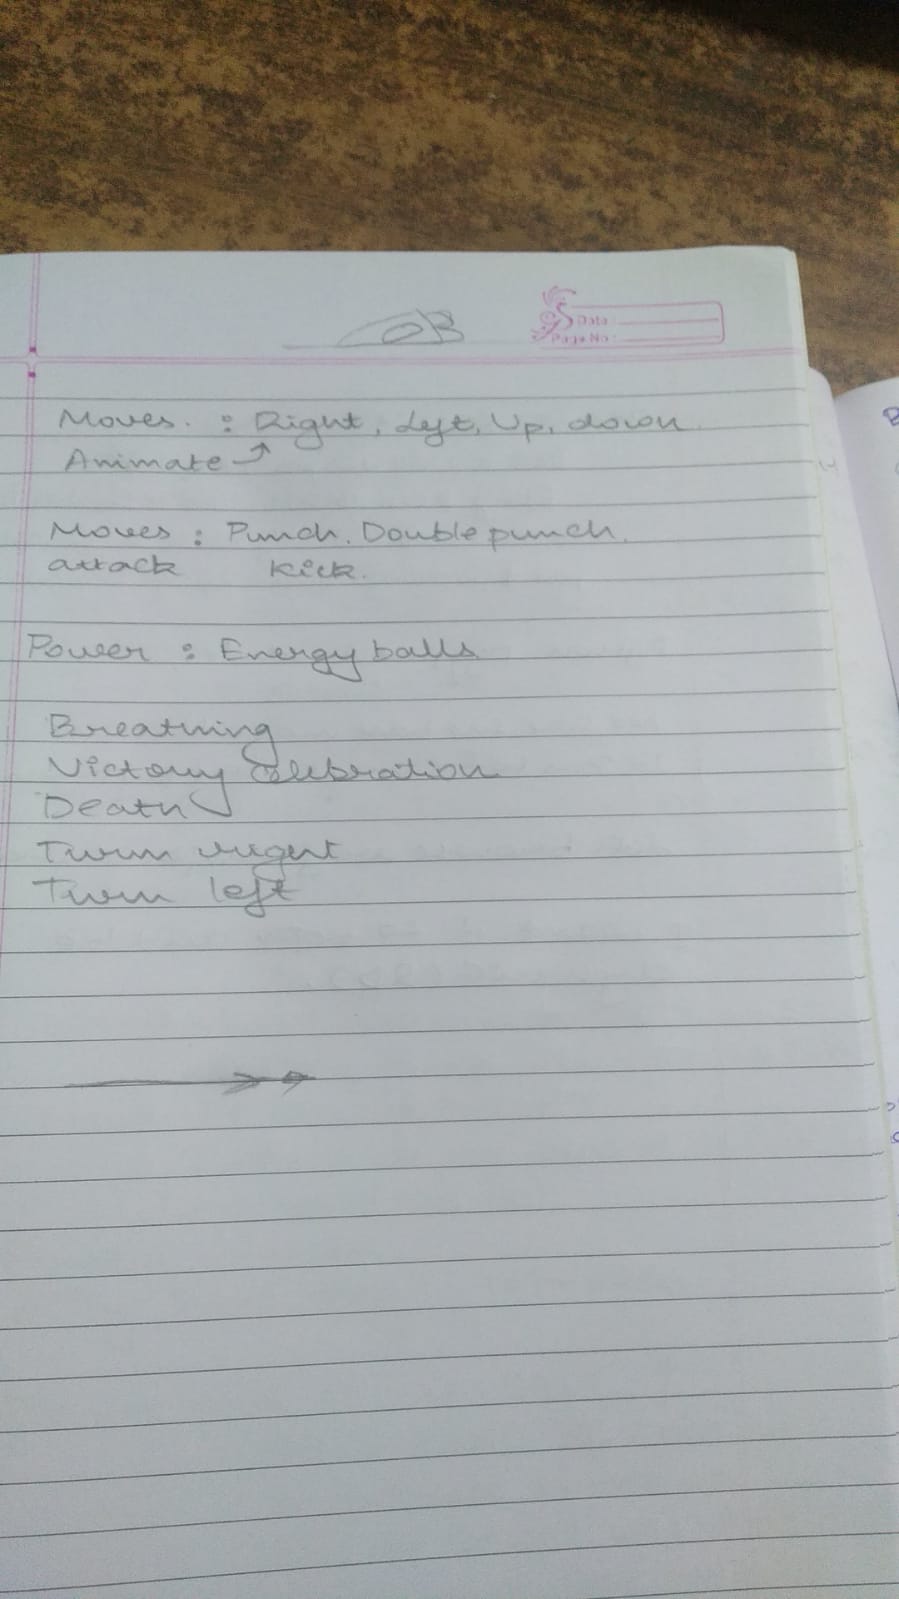 Date
Page No.
Moves. : Right, Left, Up, down.
Animate
Moves : Punch. Double punch.
attack kick.
Power : Energy balls
Breathing
Victory Celebration
Death
Turn right
Turn left